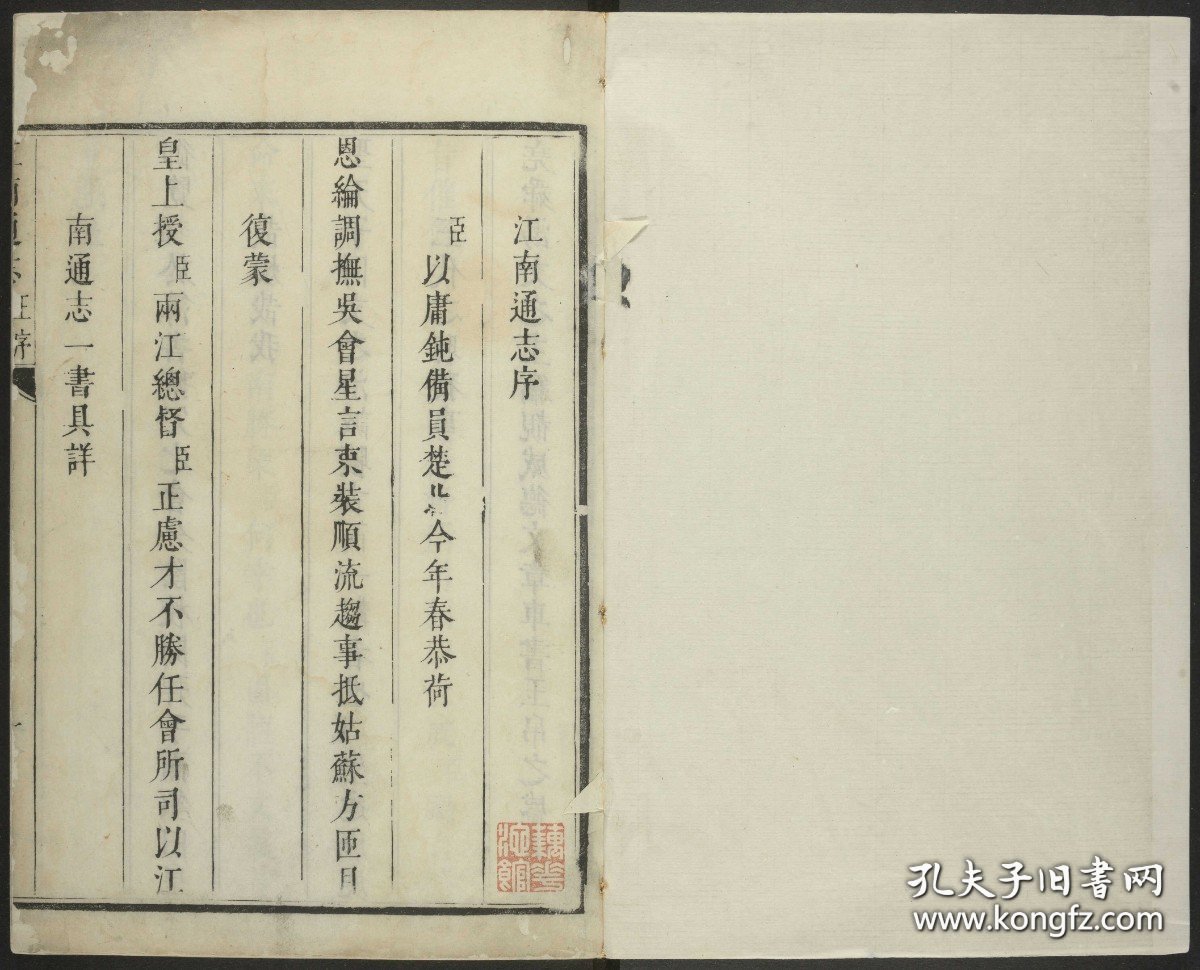 江南通志序
臣以庸鈍備員楚北今年春恭荷
恩綸調撫吳會星言束裝順流趨事抵姑蘇方匝月
復蒙
皇上授臣兩江總督臣正慮才不勝任會所司以江
南通志一書具詳
江南通志 王序
孔夫子旧书网
www.kongfz.com